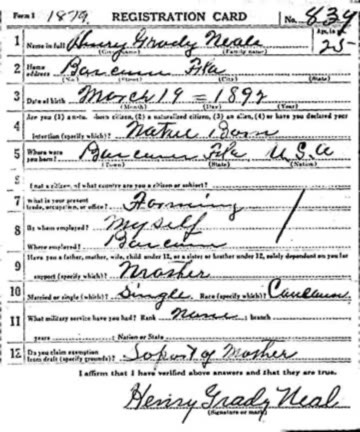 Form 1 1879 REGISTRATION CARD No. 839
1 Name in full Henry Grady Neal Age, in yrs. 25
(Given name) (Family name)
2 Home address Fla
(Street) (City) (State)
3 Date of birth March 19 = 1892
(Month) (Day) (Year)
Are you (1) a natural-born citizen, (2) a naturalized citizen, (3) an alien, (4) or have you declared your
4 intention (specify which)? Natue Born
5 Where were you born? Fla U.S.A
(Town) (State) (Nation)
6 If not a citizen, of what country are you a citizen or subject?
7 What is your present trade, occupation, or office? Farming
8 By whom employed? Myself
Where employed?
Have you a father, mother, wife, child under 12, or a sister or brother under 12, solely dependent on you for
9 support (specify which)? Mother
10 Married or single (which)? Single Race (specify which)?
11 What military service have you had? Rank None ; branch
years ; Nation or State
12 Do you claim exemption from draft (specify grounds)? Soport of Mother
I affirm that I have verified above answers and that they are true.
Henry Grady Neal
(Signature or mark)